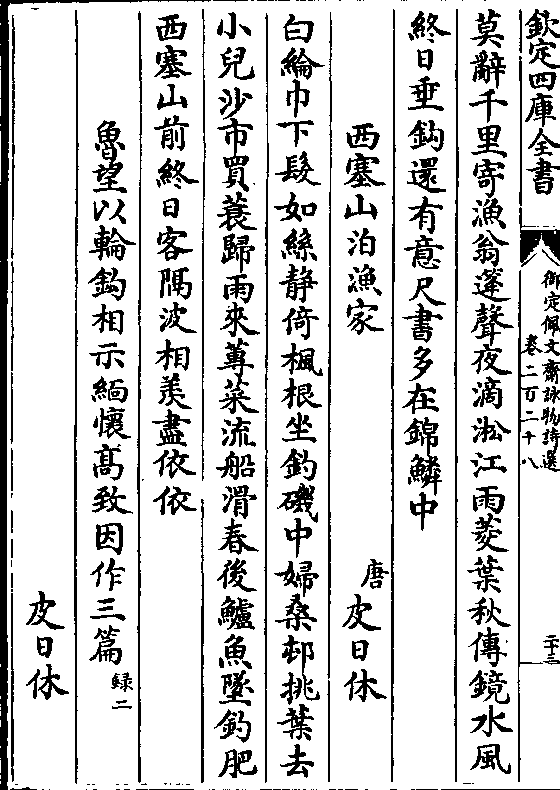 欽定四庫全書
御定佩文齋詠物詩選
卷二百二十八
二十三
莫辭千里寄漁翁蓬聲夜滴淞江雨菱葉秋傳鏡水風
終日垂鈎還有意尺書多在錦鱗中
西塞山泊漁家
唐 皮日休
白綸巾下髮如絲静倚楓根坐釣磯中婦桑邨挑葉去
小兒沙市買蓑歸雨來蓴菜流船滑春後鱸魚墜釣肥
西塞山前終日客隔波相羨盡依依
魯望以輪鈎相示緬懷髙致因作三篇
録二
皮日休